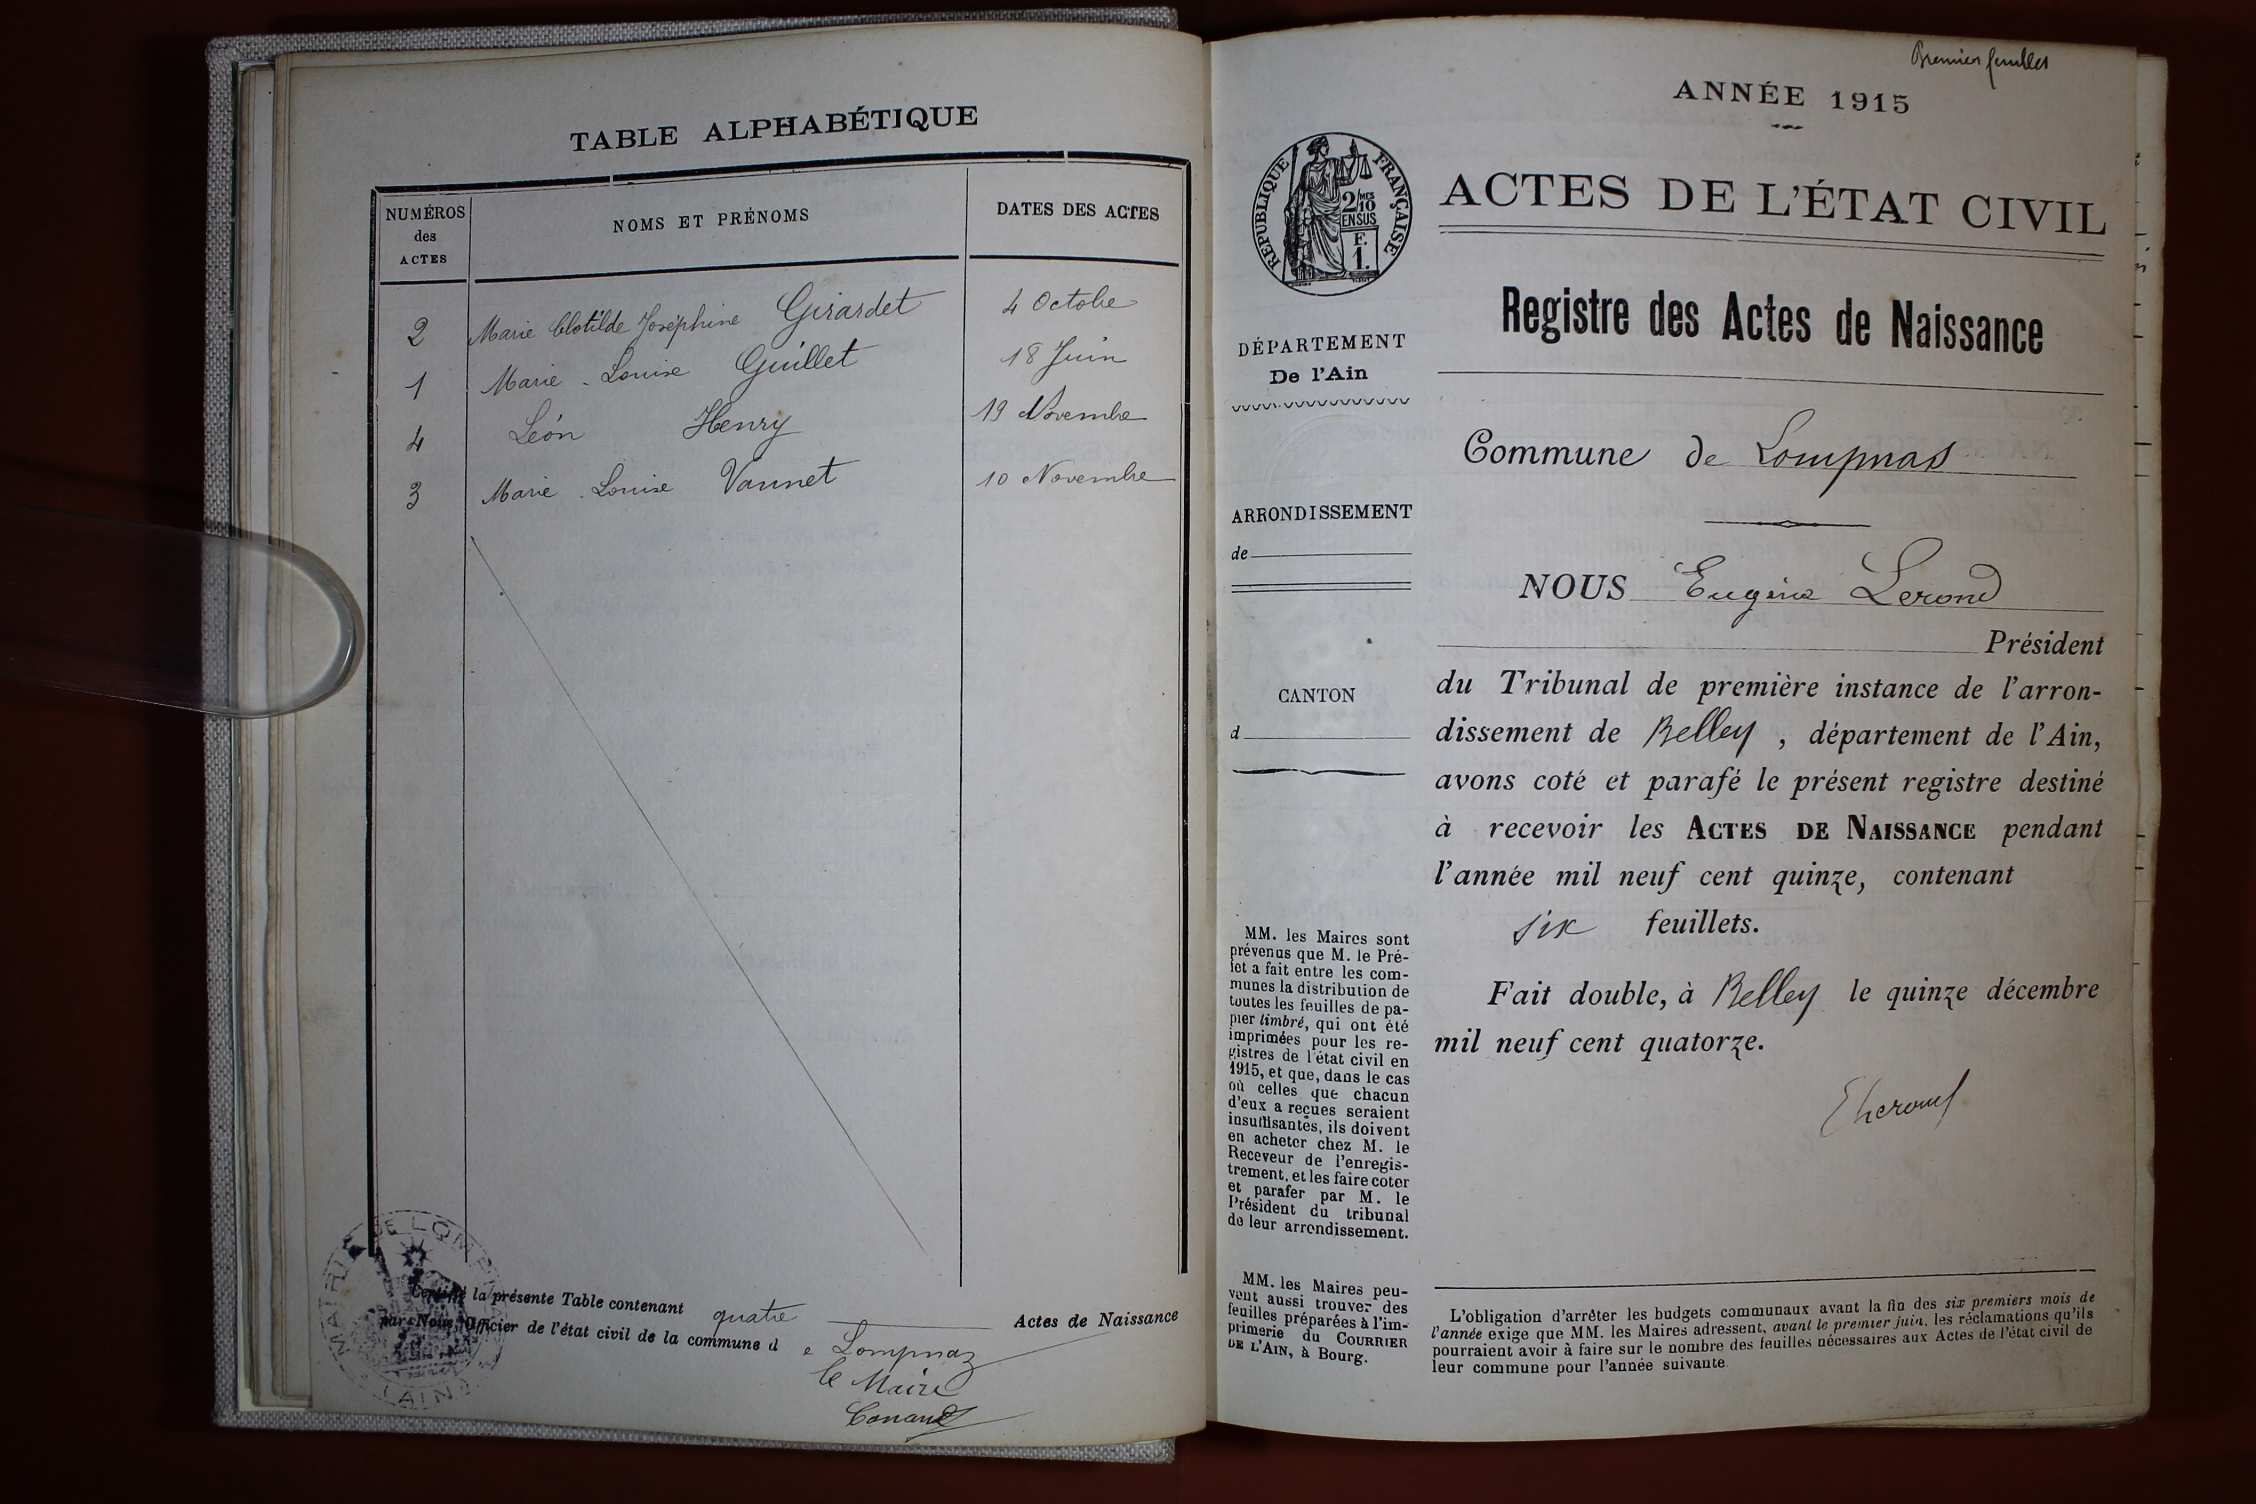 TABLE ALPHABÉTIQUE
NUMÉROS des ACTES
NOMS ET PRÉNOMS
DATES DES ACTES
2 Marie Clotilde Joséphine Girardet 4 Octobre
1 Marie - Louise Guillet 18 Juin
4 Léon Henry 19 Novembre
3 Marie - Louise Vannet 10 Novembre
Certifié la présente Table contenant quatre Actes de Naissance
par Nous, Officier de l'état civil de la commune de Lompnaz
le Maire
Conand
MAIRIE DE LOMPNAZ
(AIN)
Premier feuillet
ANNÉE 1915
RÉPUBLIQUE FRANÇAISE
2/10 MES
EN SUS
F.
1.
ACTES DE L'ÉTAT CIVIL
Registre des Actes de Naissance
DÉPARTEMENT
De l'Ain
Commune de Lompnas
ARRONDISSEMENT
de
CANTON
d
NOUS Eugène Lerond
Président
du Tribunal de première instance de l'arron-
dissement de Belley, département de l'Ain,
avons coté et parafé le présent registre destiné
à recevoir les ACTES DE NAISSANCE pendant
l'année mil neuf cent quinze, contenant
six feuillets.
Fait double, à Belley le quinze décembre
mil neuf cent quatorze.
MM. les Maires sont
prévenus que M. le Pré-
fet a fait entre les com-
munes la distribution de
toutes les feuilles de pa-
pier timbré, qui ont été
imprimées pour les re-
gistres de l'état civil en
1915, et que, dans le cas
où celles que chacun
d'eux a reçues seraient
insuffisantes, ils doivent
en acheter chez M. le
Receveur de l'enregis-
trement, et les faire coter
et parafer par M. le
Président du tribunal
de leur arrondissement.
MM. les Maires peu-
vent aussi trouver des
feuilles préparées à l'im-
primerie du COURRIER
DE L'AIN, à Bourg.
L'obligation d'arrêter les budgets communaux avant la fin des six premiers mois de
l'année exige que MM. les Maires adressent, avant le premier juin, les réclamations qu'ils
pourraient avoir à faire sur le nombre des feuilles nécessaires aux Actes de l'état civil de
leur commune pour l'année suivante.